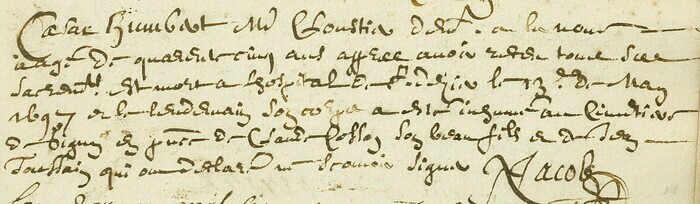 Cesar Humbert Mtre
aagé de quarente cinq ans apprez avoir receu tous ses
sacremts est mort a lhospital de St. le 13e. de May
1697 et le lendemain son corps a esté inhumé au Cimetiere
de en pnce de Claude son beau fils et de Jean
Toussain qui ont declaré ne scavoir signer Jacob